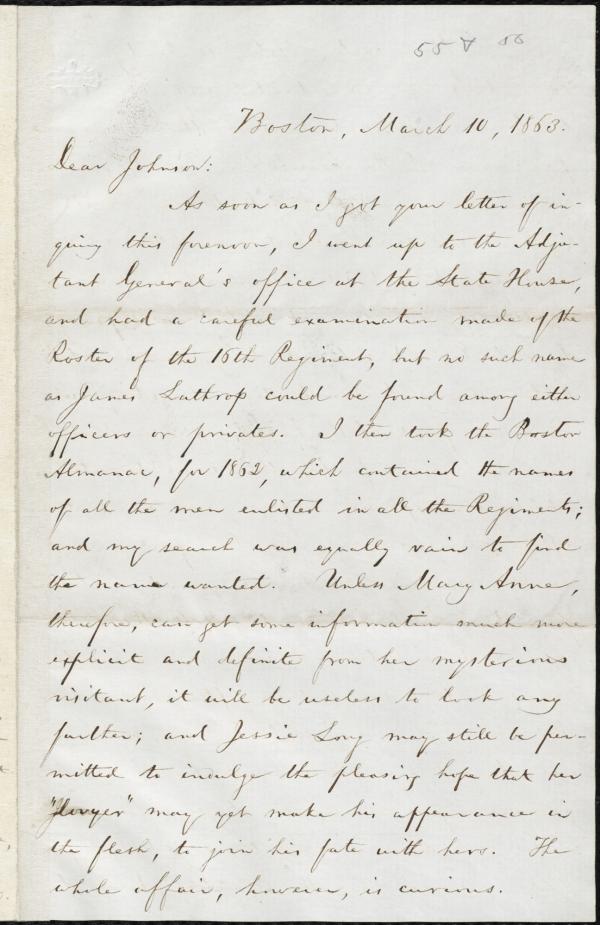 55 V 56
Boston, March 10, 1863.
Dear Johnson:
As soon as I got your letter of in-
quiry this forenoon, I went up to the Adju-
tant General's office at the State House,
and had a careful examination made of the
Roster of the 16th Regiment, but no such name
as James Lathrop could be found among either
officers or privates. I then took the Boston
Almanac, for 1862, which contained the names
of all the men enlisted in all the Regiments;
and my search was equally vain to find
the name wanted. Unless Mary Anne,
therefore, can get some information much more
explicit and definite from her mysterious
visitant, it will be useless to look any
further; and Jessie Long may still be per-
mitted to indulge the pleasing hope that her
may yet make his appearance in
the flesh, to join his fate with hers. The
whole affair, however, is curious.